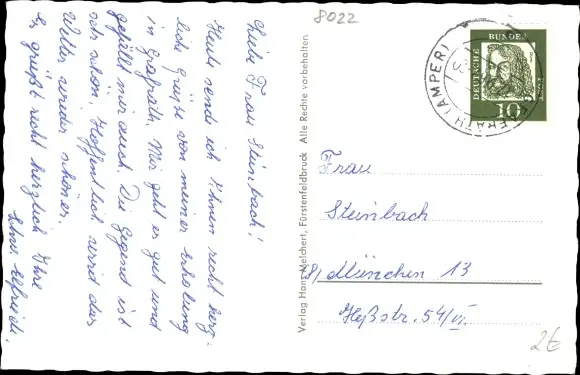 8022
Liebe Frau Steinbach!
Heute sende ich Ihnen recht herz-
liche Grüße von meiner Erholung
in Grafrath. Mir geht es gut und
gefällt mir auch. Die Gegend ist
sehr schön. Hoffentlich wird das
Wetter wieder schöner.
Es grüßt recht herzlich Ihre
Verlag Hans Melchert, Fürstenfeldbruck Alle Rechte vorbehalten
RATH (AMPER)
DEUTSCHE
BUNDES
10
Frau
Steinbach
(8) München 13
Heßstr. 54/VI.
2€